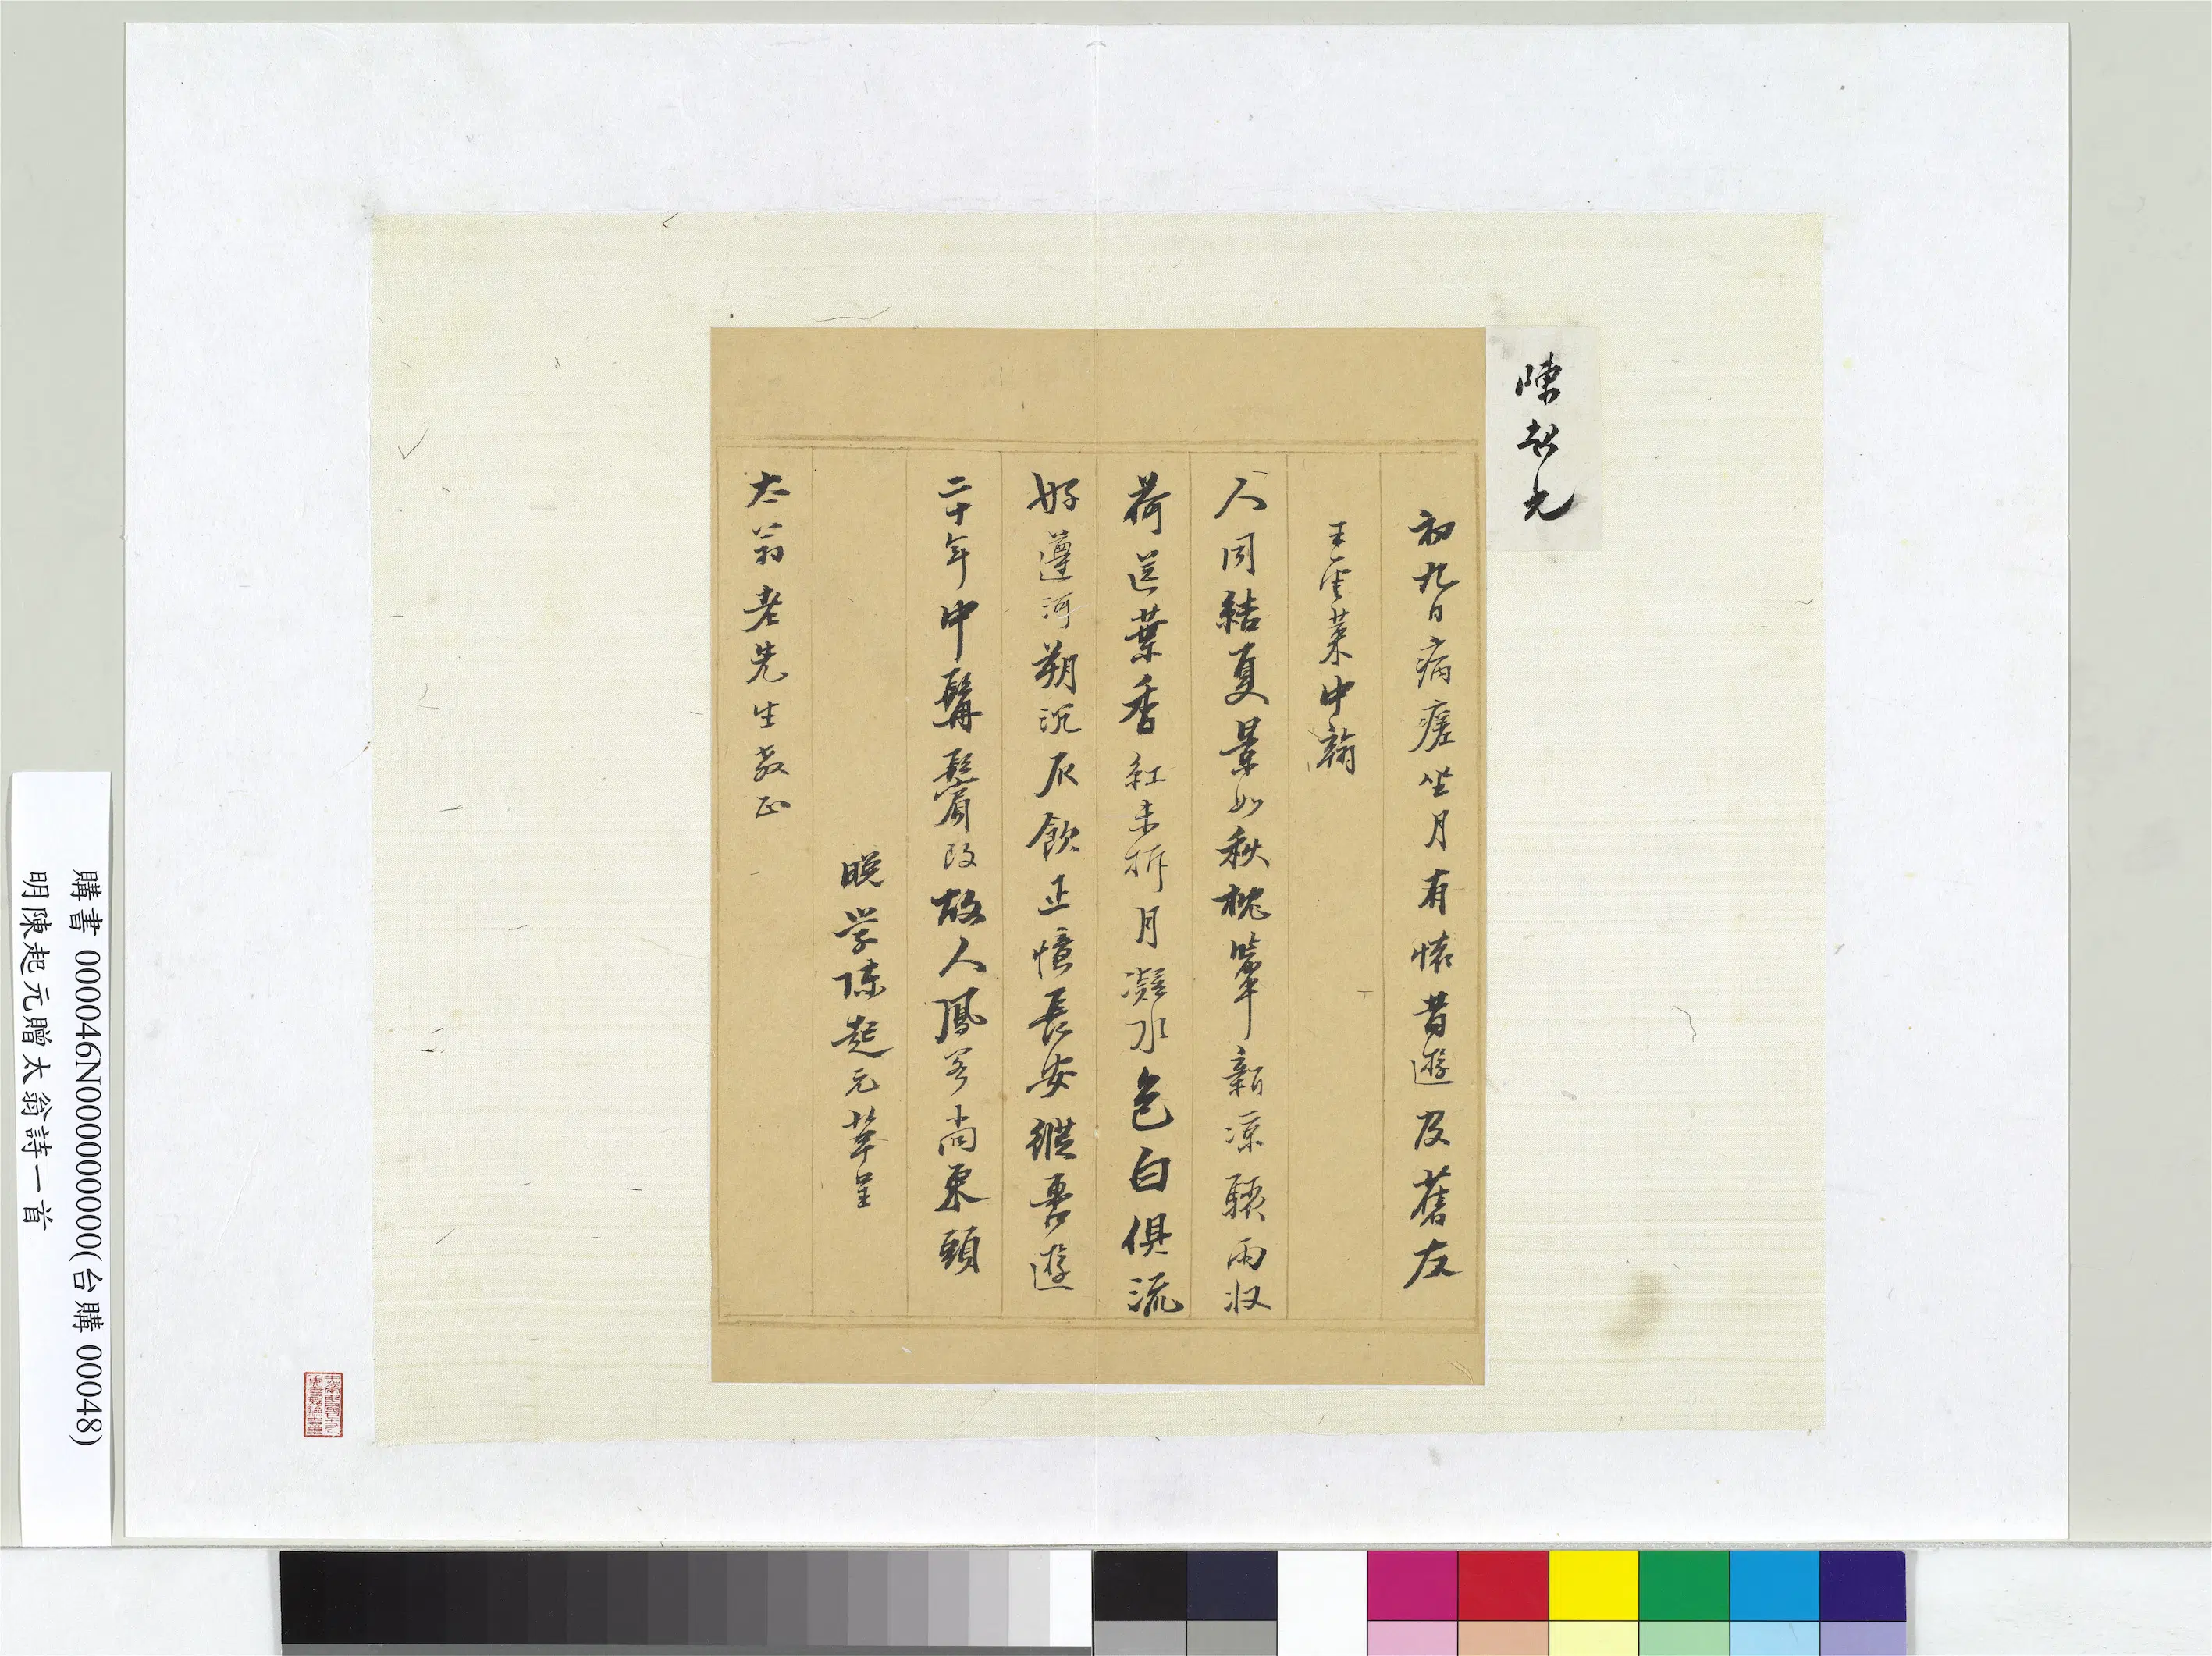 陳起元
初九日病瘧坐月有懷昔遊及舊友
王雲萊中翰
人同結夏景如秋枕簟新涼驟雨收
荷送葉香紅未拆月凝水色白俱流
好遵河朔沉灰飲正憶長安縱轡遊
二十年中鬅鬢改故人鳳翥尚東頭
晚学陳起元草呈
太翁老先生教正
購書 000046N000000000(台購 00048)
明陳起元贈太翁詩一首